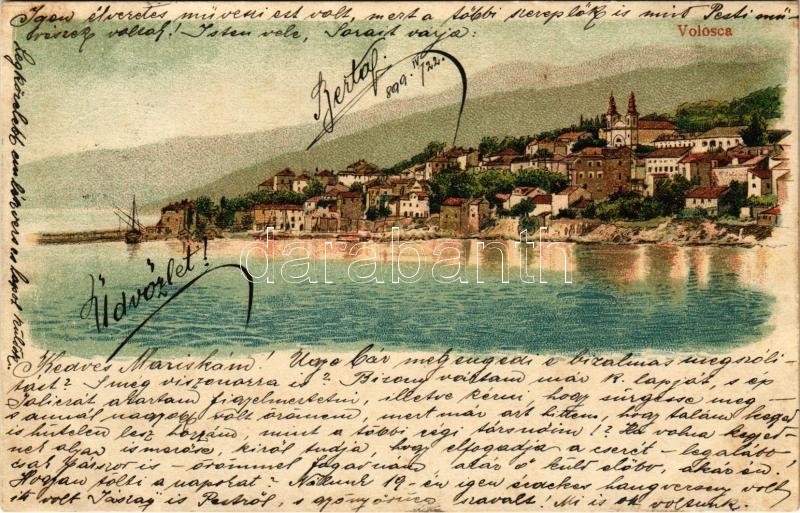 Igen élvezetes művészi est volt, mert a többi szereplők is mint Pesti mű-
vészek voltak! Isten vele, Sorait várja:
Volosca
Berta
899. IV/22.
Legközelebb
darabanth
Üdvözlet!
Kedves Mariskám! Ugye Cár megengedi e bizalmas megszóli-
tást? S meg viszonozza is? Bizony vártam már k. lapját, s ép
akartam figyelmeztetni, illetve kérni, hogy sürgesse meg –
s annál nagyobb volt örömem, mert már azt hittem, hogy talán kegyed
is hűtelen lesz hozzám, mint a többi régi társnőim!? Ha volna kegyed-
nek olyan ismerőse, kiről tudja, hogy elfogadja a cserét – legalább
csak is – örömmel fogadnám akár ő küld előbb, akár én!
Hogyan tölti a napokat? Nálunk 19-én igen érdekes hangverseny volt
itt volt Jászay is Pestről, s gyönyörűen szavalt! Mi is ott voltunk.